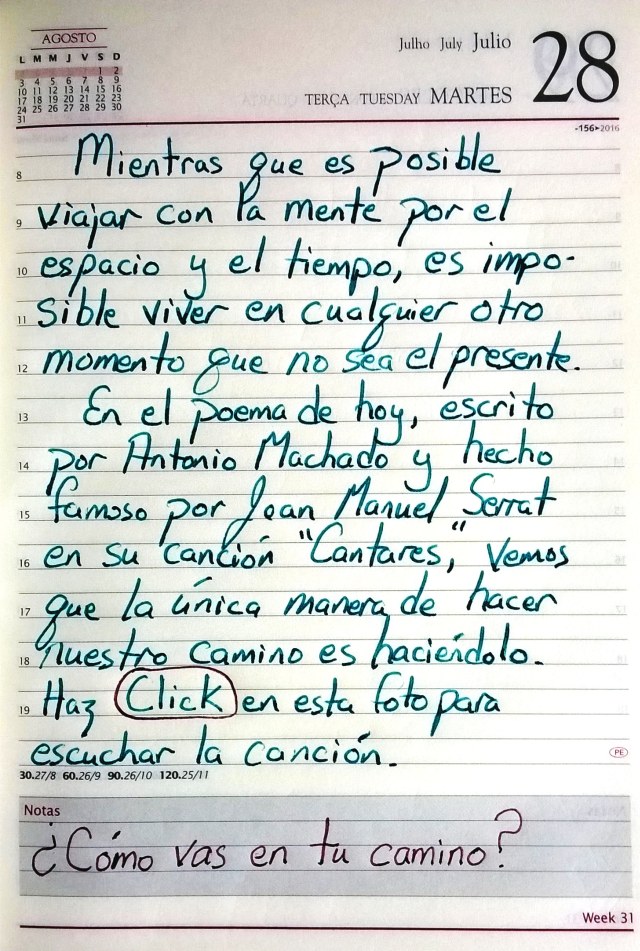 AGOSTO
L M M J V S D
1 2
3 4 5 6 7 8 9
10 11 12 13 14 15 16
17 18 19 20 21 22 23
24 25 26 27 28 29 30
31
Julho July Julio
28
TERÇA TUESDAY MARTES
-156▸2016
8 Mientras que es posible
9 viajar con la mente por el
10 espacio y el tiempo, es impo-
11 sible viver en cualquier otro
12 momento que no sea el presente.
13 En el poema de hoy, escrito
14 por Antonio Machado y hecho
15 famoso por Joan Manuel Serrat
16 en su canción "Cantares," vemos
17 que la única manera de hacer
18 nuestro camino es haciéndolo.
19 Haz Click en esta foto para
escuchar la canción.
PE
30.27/8 60.26/9 90.26/10 120.25/11
Notas
¿Cómo vas en tu camino?
Week 31